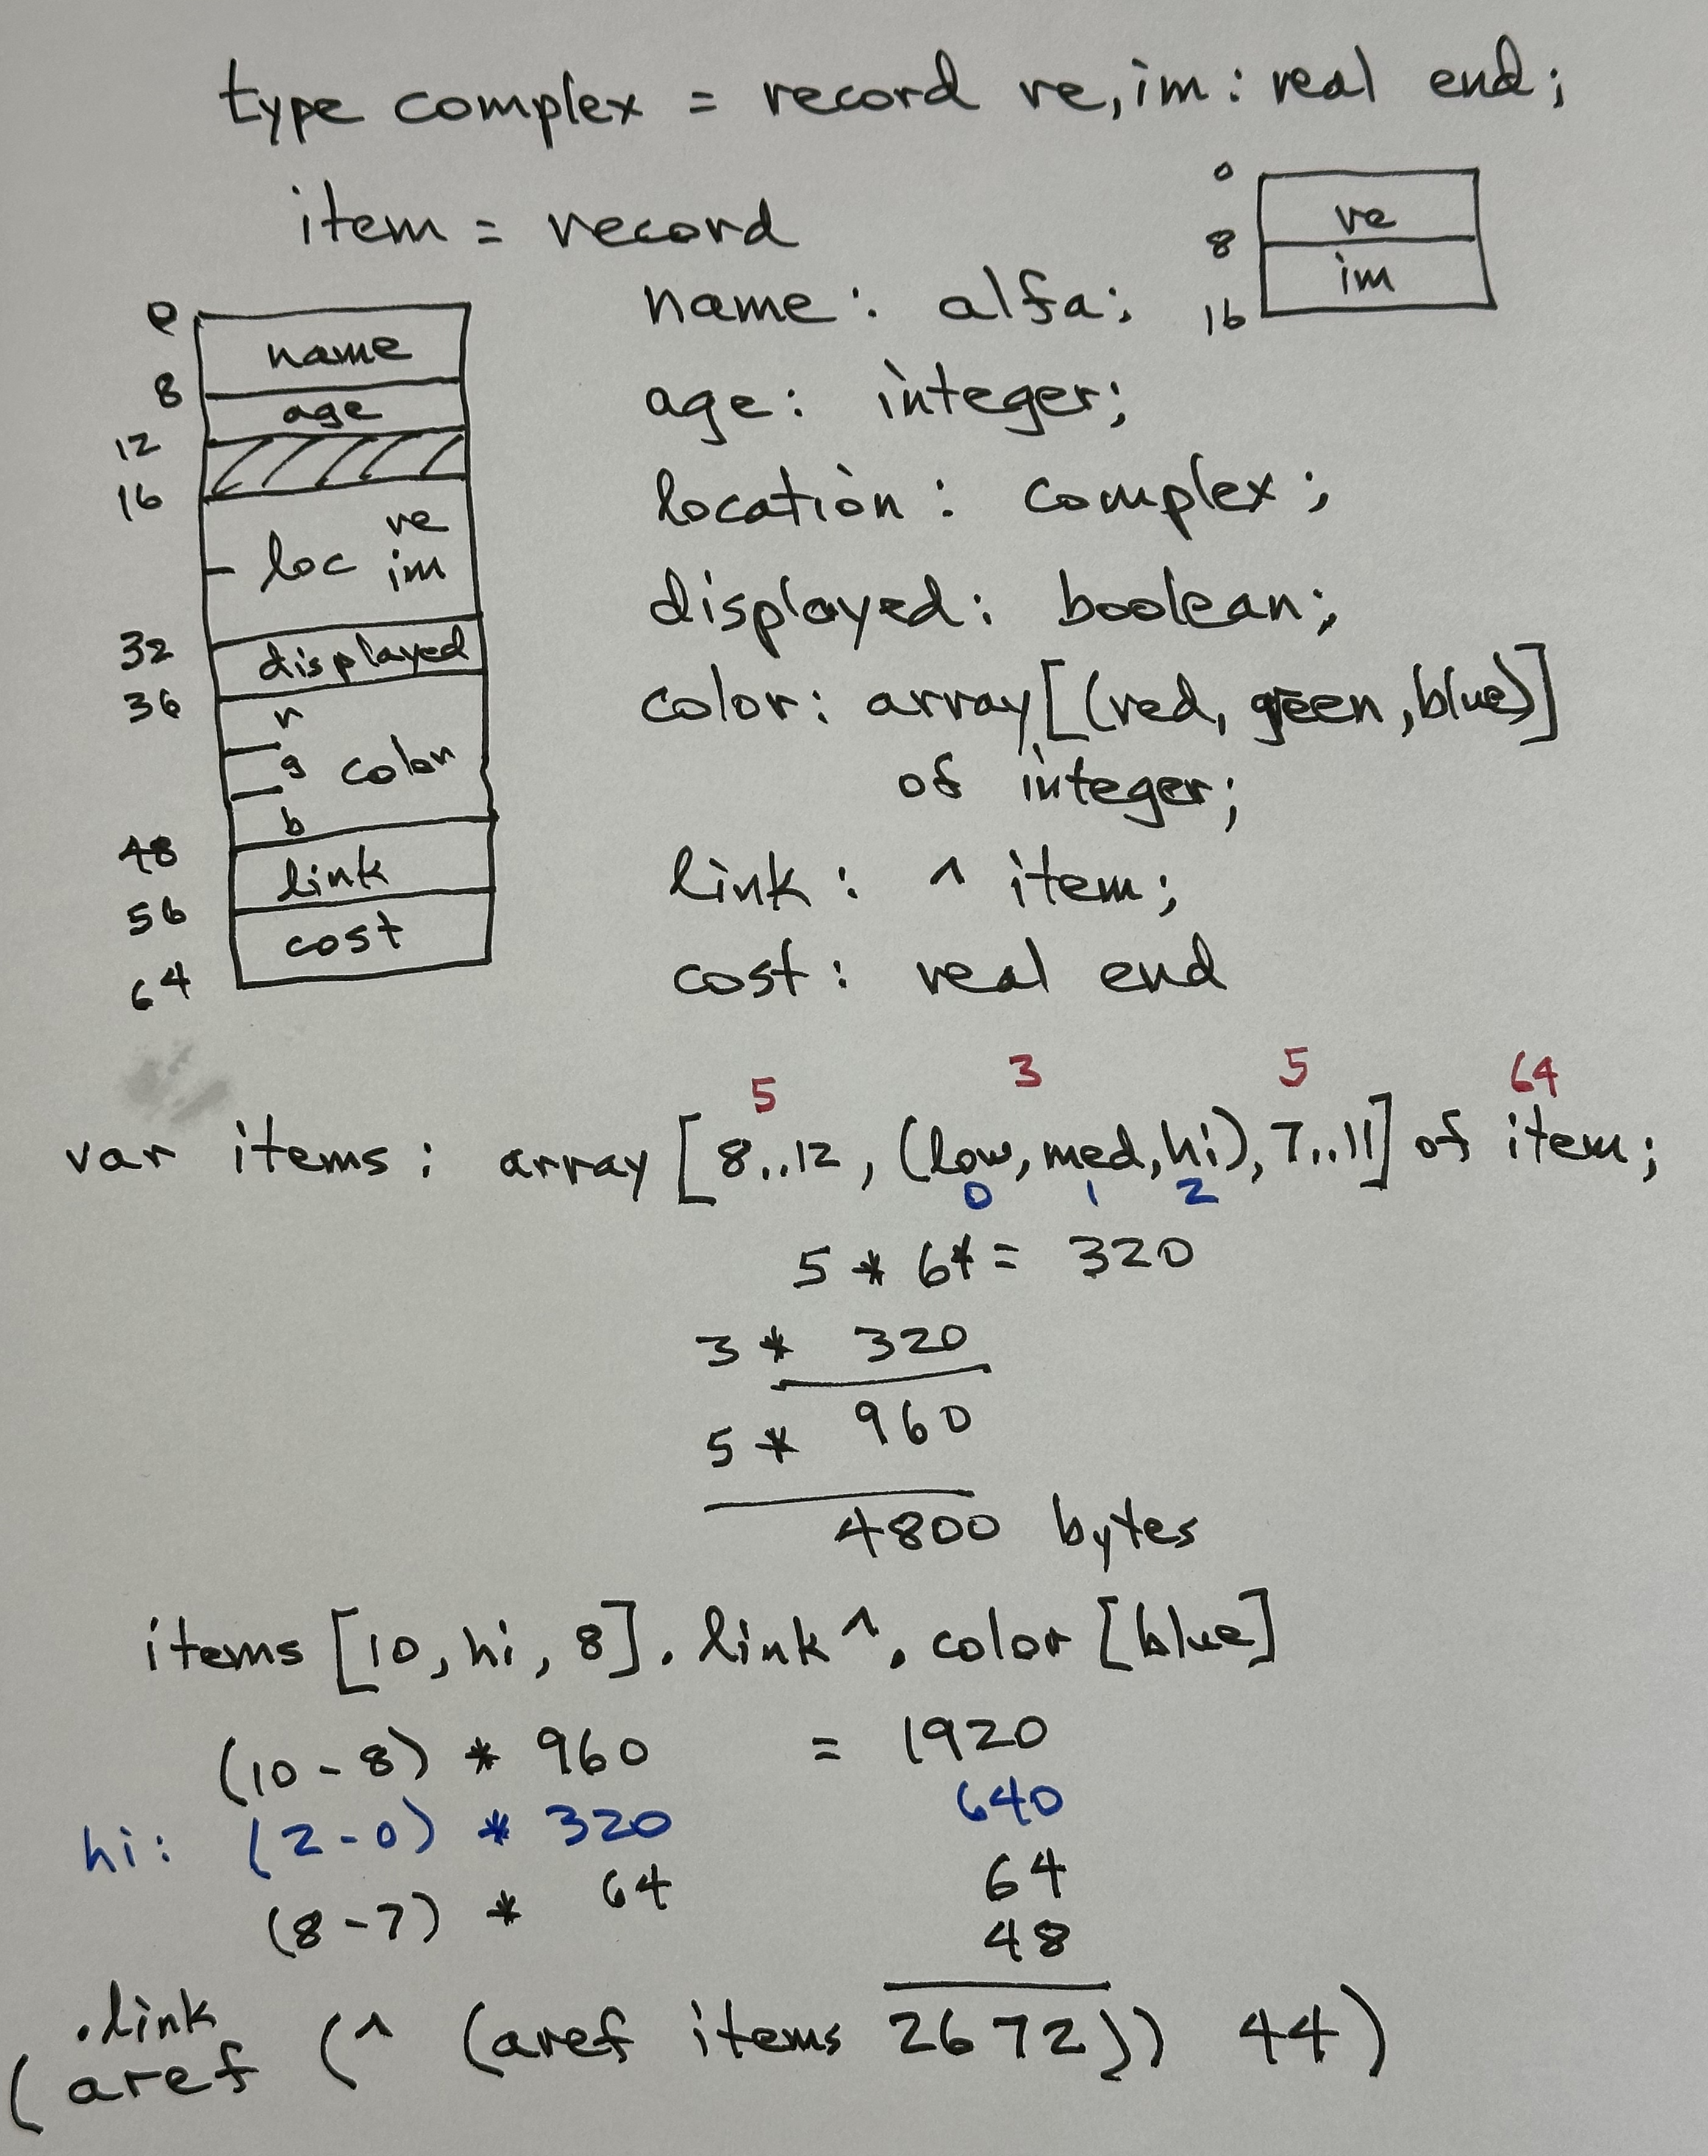 type complex = record re,im: real end;
item = record
0
re
8
im
16
name: alfa;
age: integer;
location: complex;
displayed: boolean;
color: array[(red, green, blue)]
of integer;
link: ^ item;
cost: real end
0
name
8
age
12
16
re
loc im
32
displayed
36
r
g color
b
48
link
56
cost
64
5 3 5 64
var items: array [8..12, (low, med, hi), 7..11] of item;
0 1 2
5 * 64 = 320
3 * 320
960
5 *
4800 bytes
items [10, hi, 8]. link ^. color [blue]
(10 - 8) * 960 = 1920
hi: (2 - 0) * 320 640
(8 - 7) * 64 64
.link 48
(aref (^ (aref items 2672)) 44)